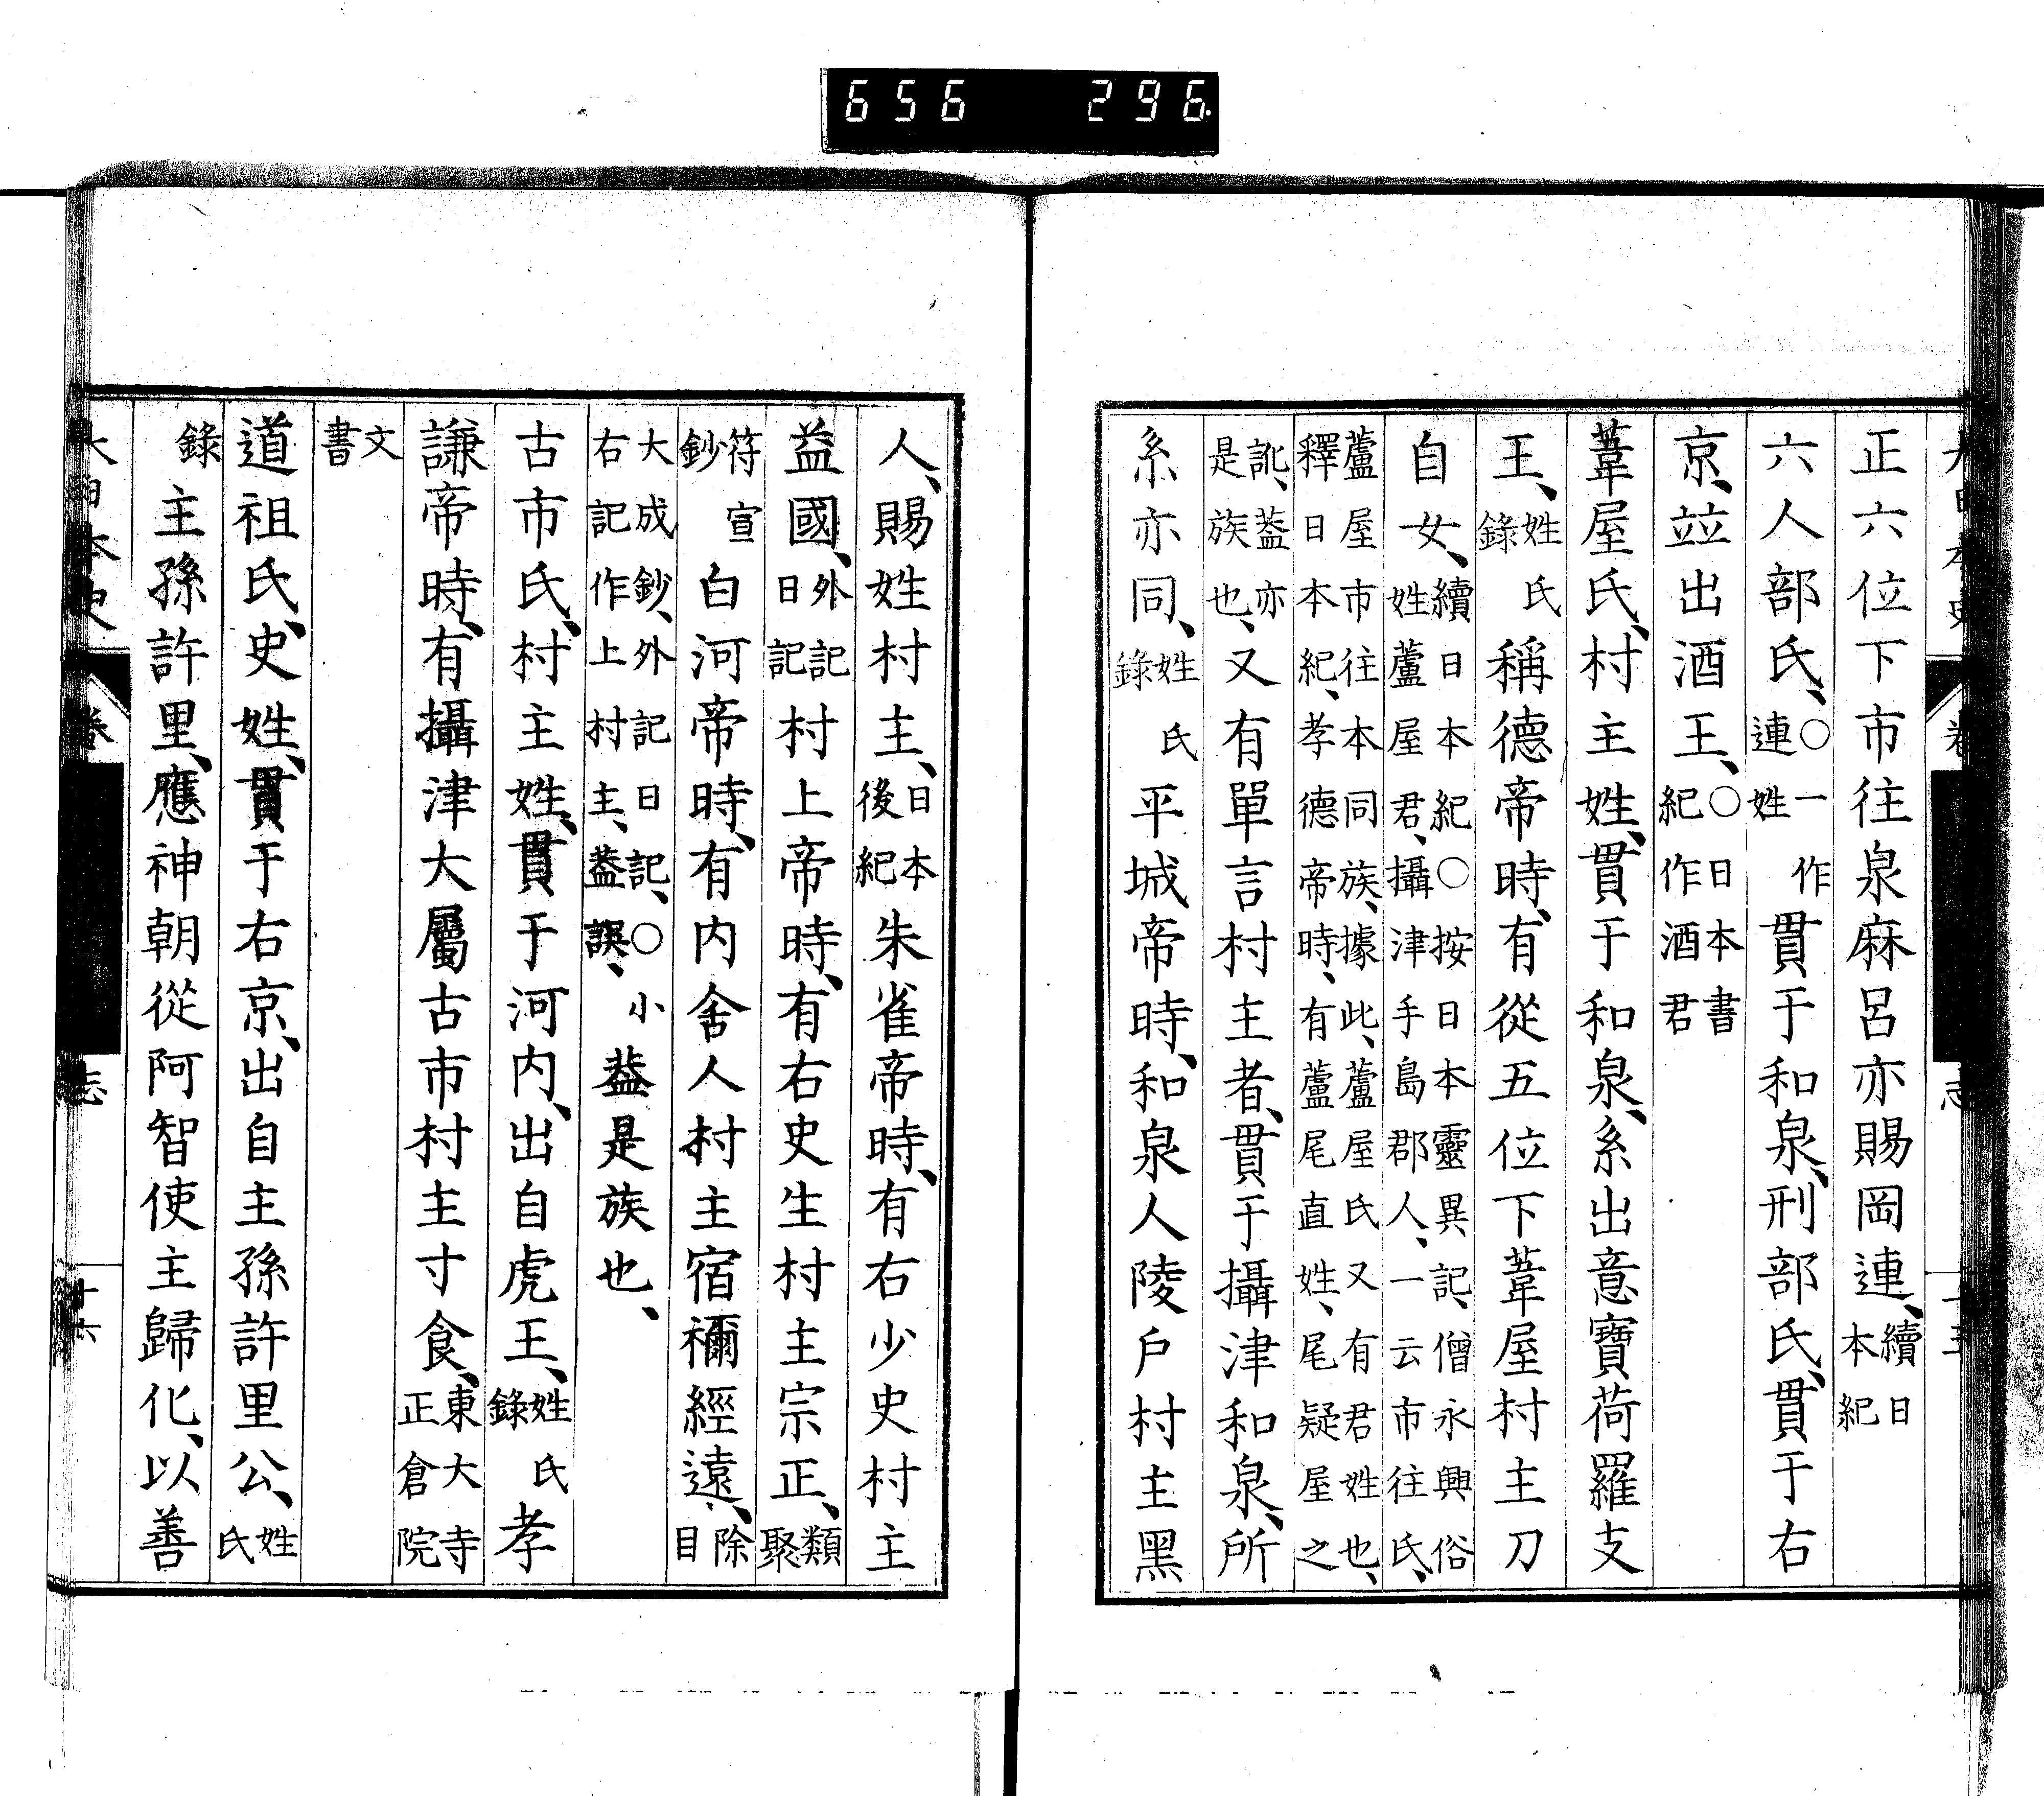 656 296.
大日本史 卷 志 十五
正六位下市往泉麻呂亦賜岡連、續日本紀
六人部氏、○一作連姓貫于和泉、刑部氏、貫于右
京、竝出酒王、○日本書紀作酒君
葦屋氏、村主姓、貫于和泉、系出意寶荷羅支
王、姓氏錄稱德帝時、有從五位下葦屋村主刀
自女、續日本紀○按日本靈異記、僧永興俗姓蘆屋君、攝津手島郡人、一云市往氏、
蘆屋市往本同族、據此、蘆屋氏又有君姓也、釋日本紀、孝德帝時、有蘆尾直姓、尾疑屋之
訛、蓋亦是族也、又有單言村主者、貫于攝津和泉、所
系亦同、姓氏錄平城帝時、和泉人陵戶村主黑
人、賜姓村主、日本後紀朱雀帝時、有右少史村主
益國、外記日記村上帝時、有右史生村主宗正、類聚
符宣鈔白河帝時、有内舍人村主宿禰經遠、除目
大成鈔、外記日記、○小右記作上村主、蓋誤、蓋是族也、
古市氏、村主姓、貫于河内、出自虎王、姓氏錄孝
謙帝時、有攝津大屬古市村主寸食、東大寺正倉院
文書
道祖氏、史姓、貫于右京、出自主孫許里公、姓氏
錄主孫許里、應神朝從阿智使主歸化、以善
大日本史 卷 志 十六